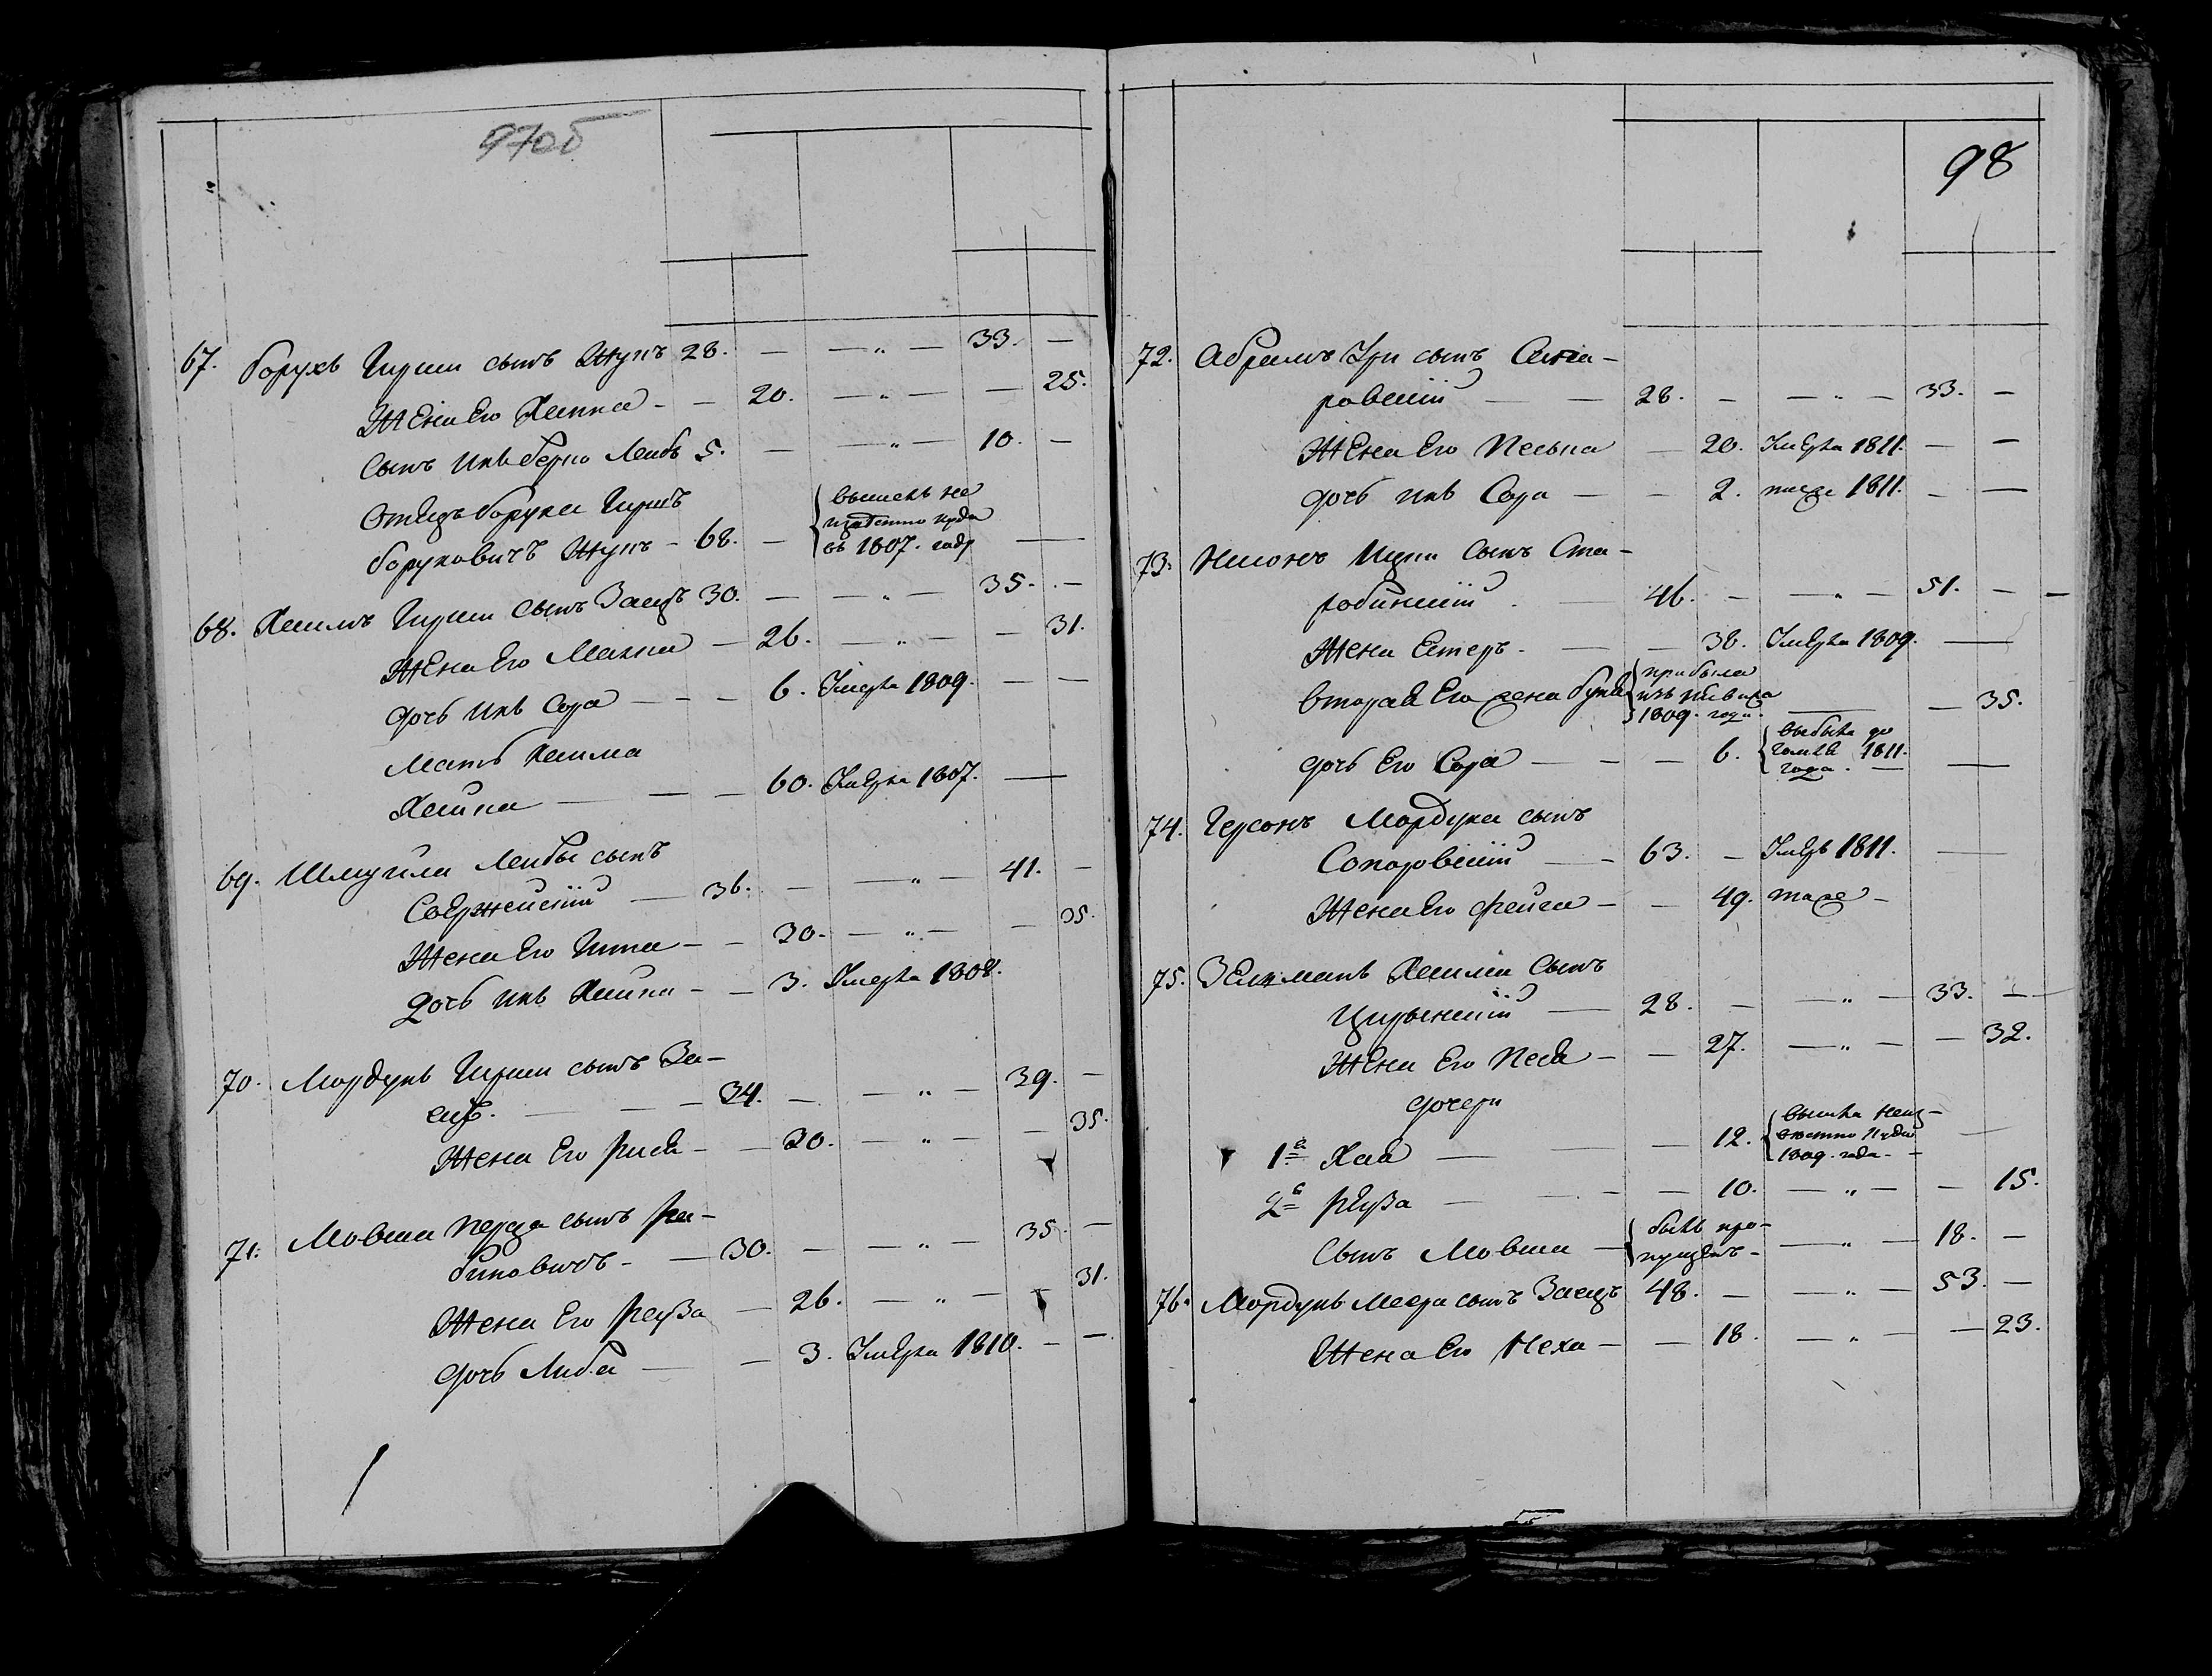 97об
67. Борухъ Гирши сынъ Жукъ 28. — — „ — 33. —
Жена Его Хашка — — 20. — „ — — 25.
Сынъ ихъ Берко Лейбъ 5. — — „ — 10. —
Отецъ Боруха Гиршъ вышелъ не
извѣстно куда
Боруховичъ Жукъ — 68. — въ 1807. году —
68. Хаимъ Гирши сынъ Заецъ 30. — — „ — 35. —
Жена Его Малка — 26. — „ — — 31.
дочь ихъ Сора — — — 6. Умерла 1809. — —
Мать Хаима
Хайка — — — 60. Умерла 1807. —
69. Шмуйла Лейбы сынъ
Свержейскій — 36. — — „ — 41. —
Жена Его Гита — — 30. — „ — — 35.
дочь ихъ Хайка — — 3. Умерла 1808.
70. Мордухъ Гирши сынъ За-
ецъ. — — — 34. — — „ — 39. —
Жена Его Рися — — 30. — „ — — 35.
71. Мовша Перца сынъ Ра-
биновичъ — — 30. — — „ — 35 —
Жена Его Рейза — 26. — „ — — 31.
дочь Либа — — 3. Умерла 1810. — —
98
72. Абрамъ Ури сынъ
— — 28. — — „ — 33. —
Жена Его Песька — 20. Умерла 1811. — —
дочь ихъ Сора — — 2. 1811. — —
73. Ицки сынъ Ста-
робинскій — 46. — — „ — 51. — —
Жена Естеръ — — — 38. Умерла 1809. —
вторая Его жена прибыла
изъ
1809. года. — — 35.
дочь Его Сора — — — 6. выбыла
1811.
года — —
74. Герсонъ Мордуха сынъ
— — 63. — Умеръ 1811. —
Жена Его Фейга — — 49. тоже —
75. Зелманъ Хаима сынъ
Циринскій — 28. — — „ — 33. —
Жена Его Песя — — 27. — „ — — 32.
дочери
1я Хая — — — 12. вышла неиз-
вѣстно куда
1809. года — —
2я Рейза — — — — 10. — „ — — 15.
Сынъ Мовша — былъ про-
пущенъ — — „ — 18. —
76. Мордухъ Меера сынъ Заецъ 48. — — „ — 53. —
Жена Его Неха — — 18. — „ — — 23.